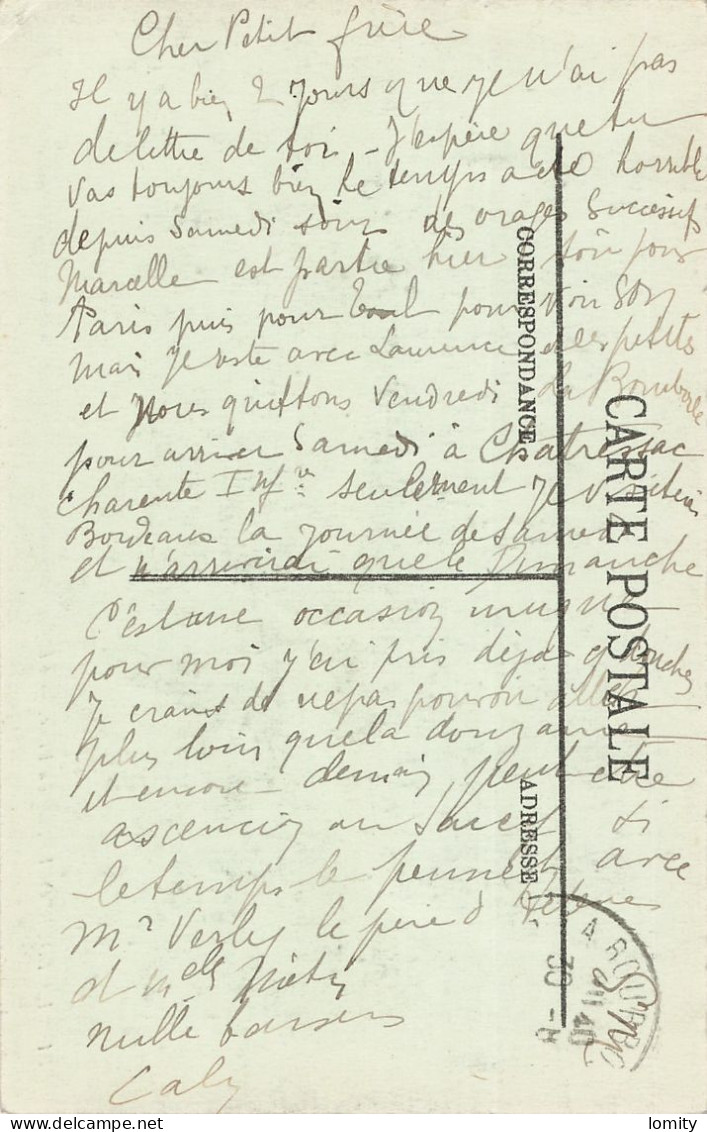 Cher Petit frère
Il y a bien 2 jours que je n'ai pas
de lettre de toi - J'espère que tu
vas toujours bien le temps a été horrible
depuis Samedi soir des orages successifs
Marcelle est partie hier soir pour
Paris puis pour pour voir son
mari je reste avec Laurence et les petits
et nous quittons Vendredi La Bourboule
pour arriver Samedi à Chatressac
Charente Infre seulement je visiterai
Bordeaux la journée de Samedi
et n'arriverai que le Dimanche
C'est une occasion unique
pour moi j'en pris déjà douches
je crains de ne pas pouvoir aller
plus loin que la douzaine
et encore demain peut être
ascencion au Sancy si
le temps le permet avec
Mr Verley le père d
et melle
mille baisers
Caly
CORRESPONDANCE
CARTE POSTALE
ADRESSE
LA BOURBOULE
30
lomity